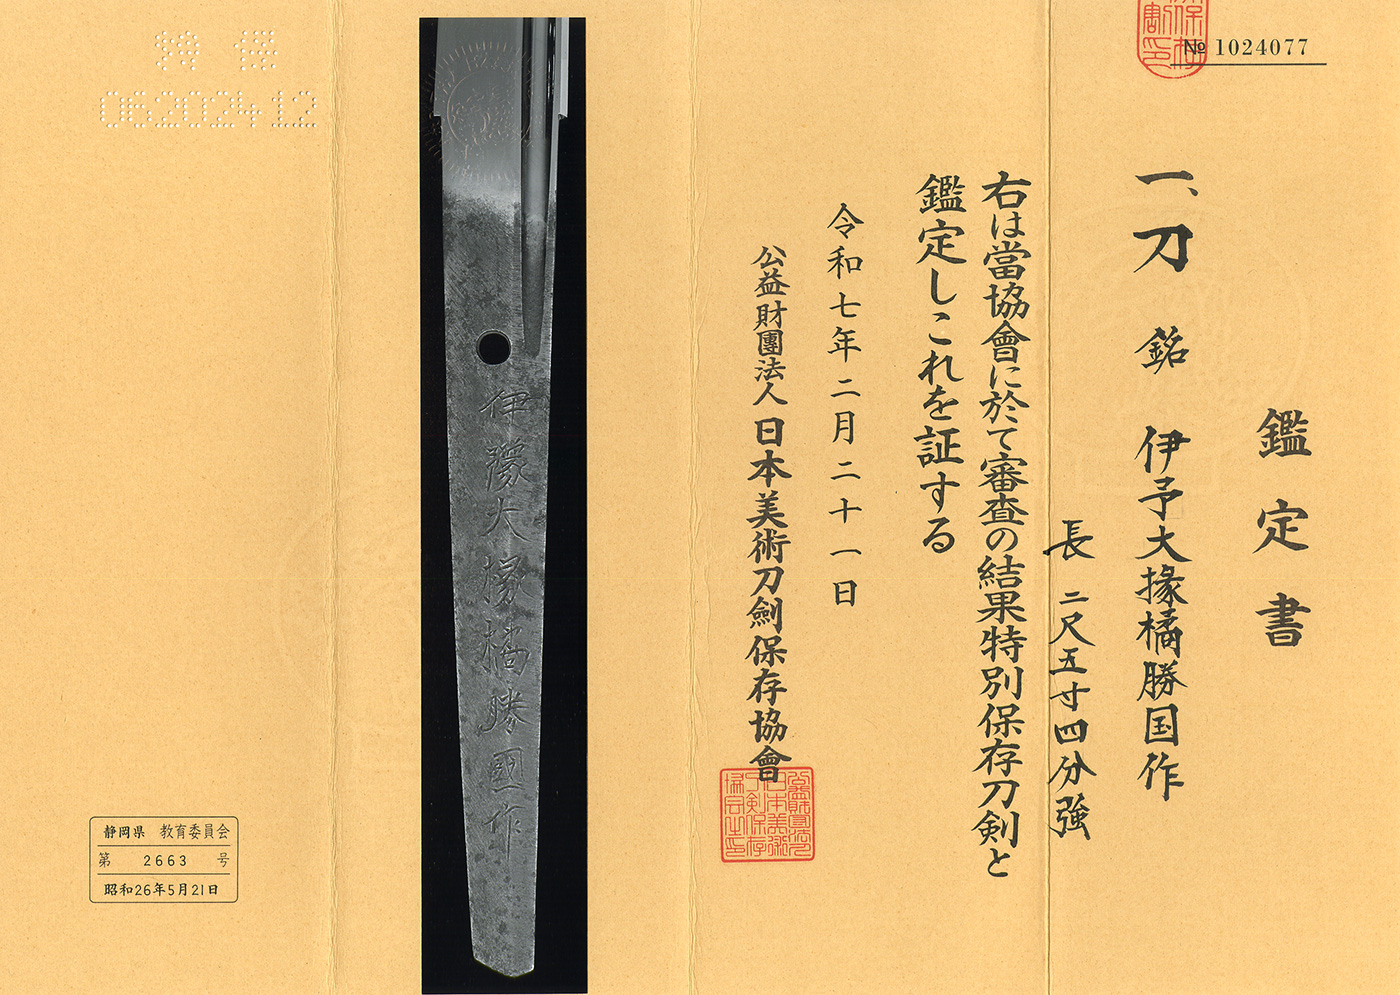 № 1024077
鑑定書
一、刀 銘 伊予大掾橘勝国作
長 二尺五寸四分強
右は當協會に於て審査の結果特別保存刀剣と
鑑定しこれを証する
令和七年二月二十一日
公益財團法人 日本美術刀劍保存協會
伊豫大掾橘勝國作
06202412
静岡県 教育委員会
第 2663 号
昭和26年5月21日